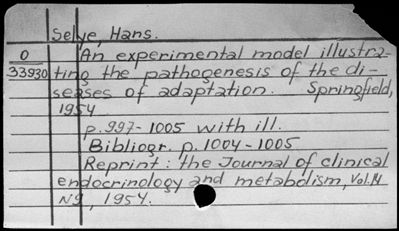 Selye, Hans.
0 An experimental model illustra-
33930 ting the pathogenesis of the di-
seases of adaptation. Springfield,
1954
p. 997-1005 with ill.
Bibliogr. p. 1004-1005
Reprint: the Journal of clinical
endocrinology and metabolism, Vol. 14
N9, 1954.